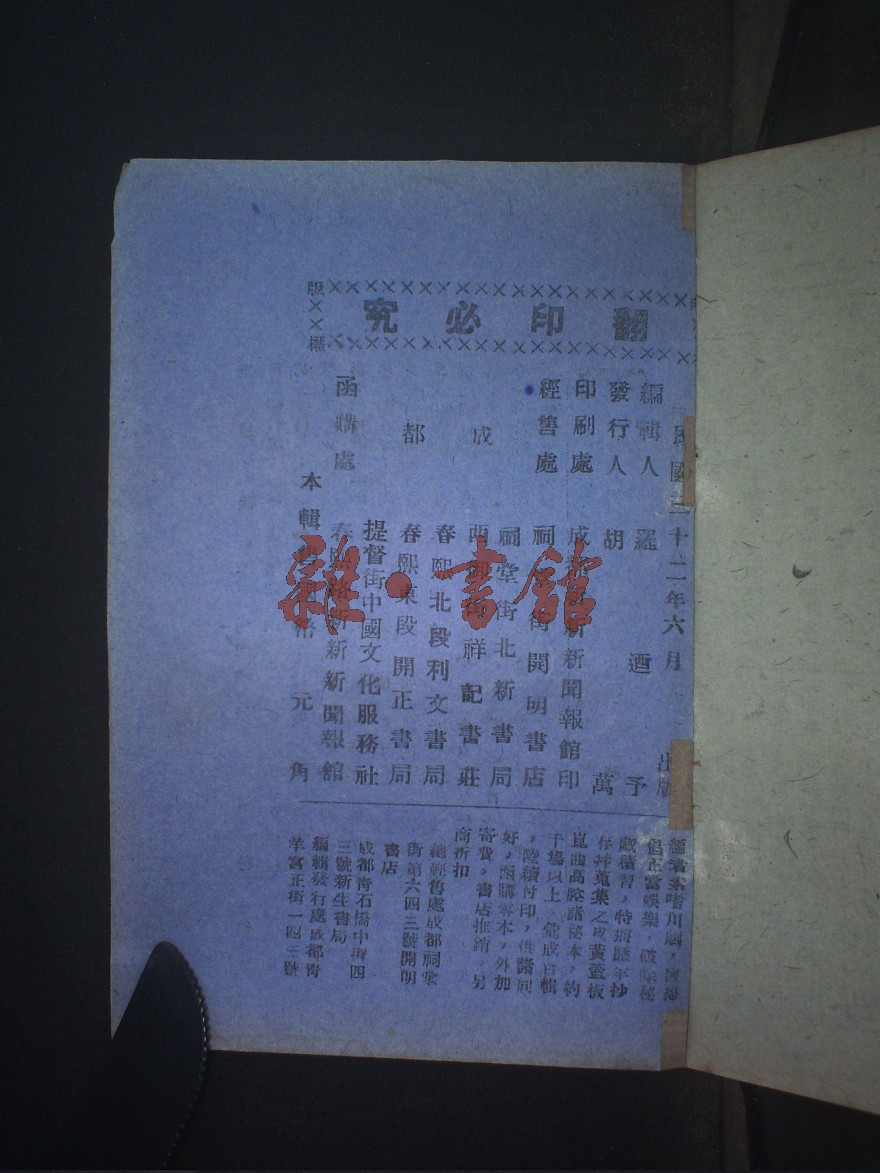 翻印必究
版××權
民國三十二年六月 出版
編輯人 羅 迺 予
發行人 胡 萬
印刷處 成都 新新聞報館印
經售處 祠堂街開明書店
成 祠堂街北新書局
西御街祥記書莊
都 春熙北段利文書局
春熙東段開正書局
提督街中國文化服務社
函購處 春熙路新新新聞報館
本輯 幣 元 角
編者素嗜川劇,
倡正當娛樂,破除秘
藏積習,特將歷年抄
存并蒐集之皮黃蓋板
崑曲高腔諸秘本,約
千場以上,彙成百輯
,陸續付印,供諸同
好,函購零本,外加
寄費,書店推銷,另
商折扣
總經售處成都祠堂
街第六四三號開明
書店
成都青石橋中街四
三號新生書局
編輯發行處成都青
羊宮正街一四三號
雜·書館